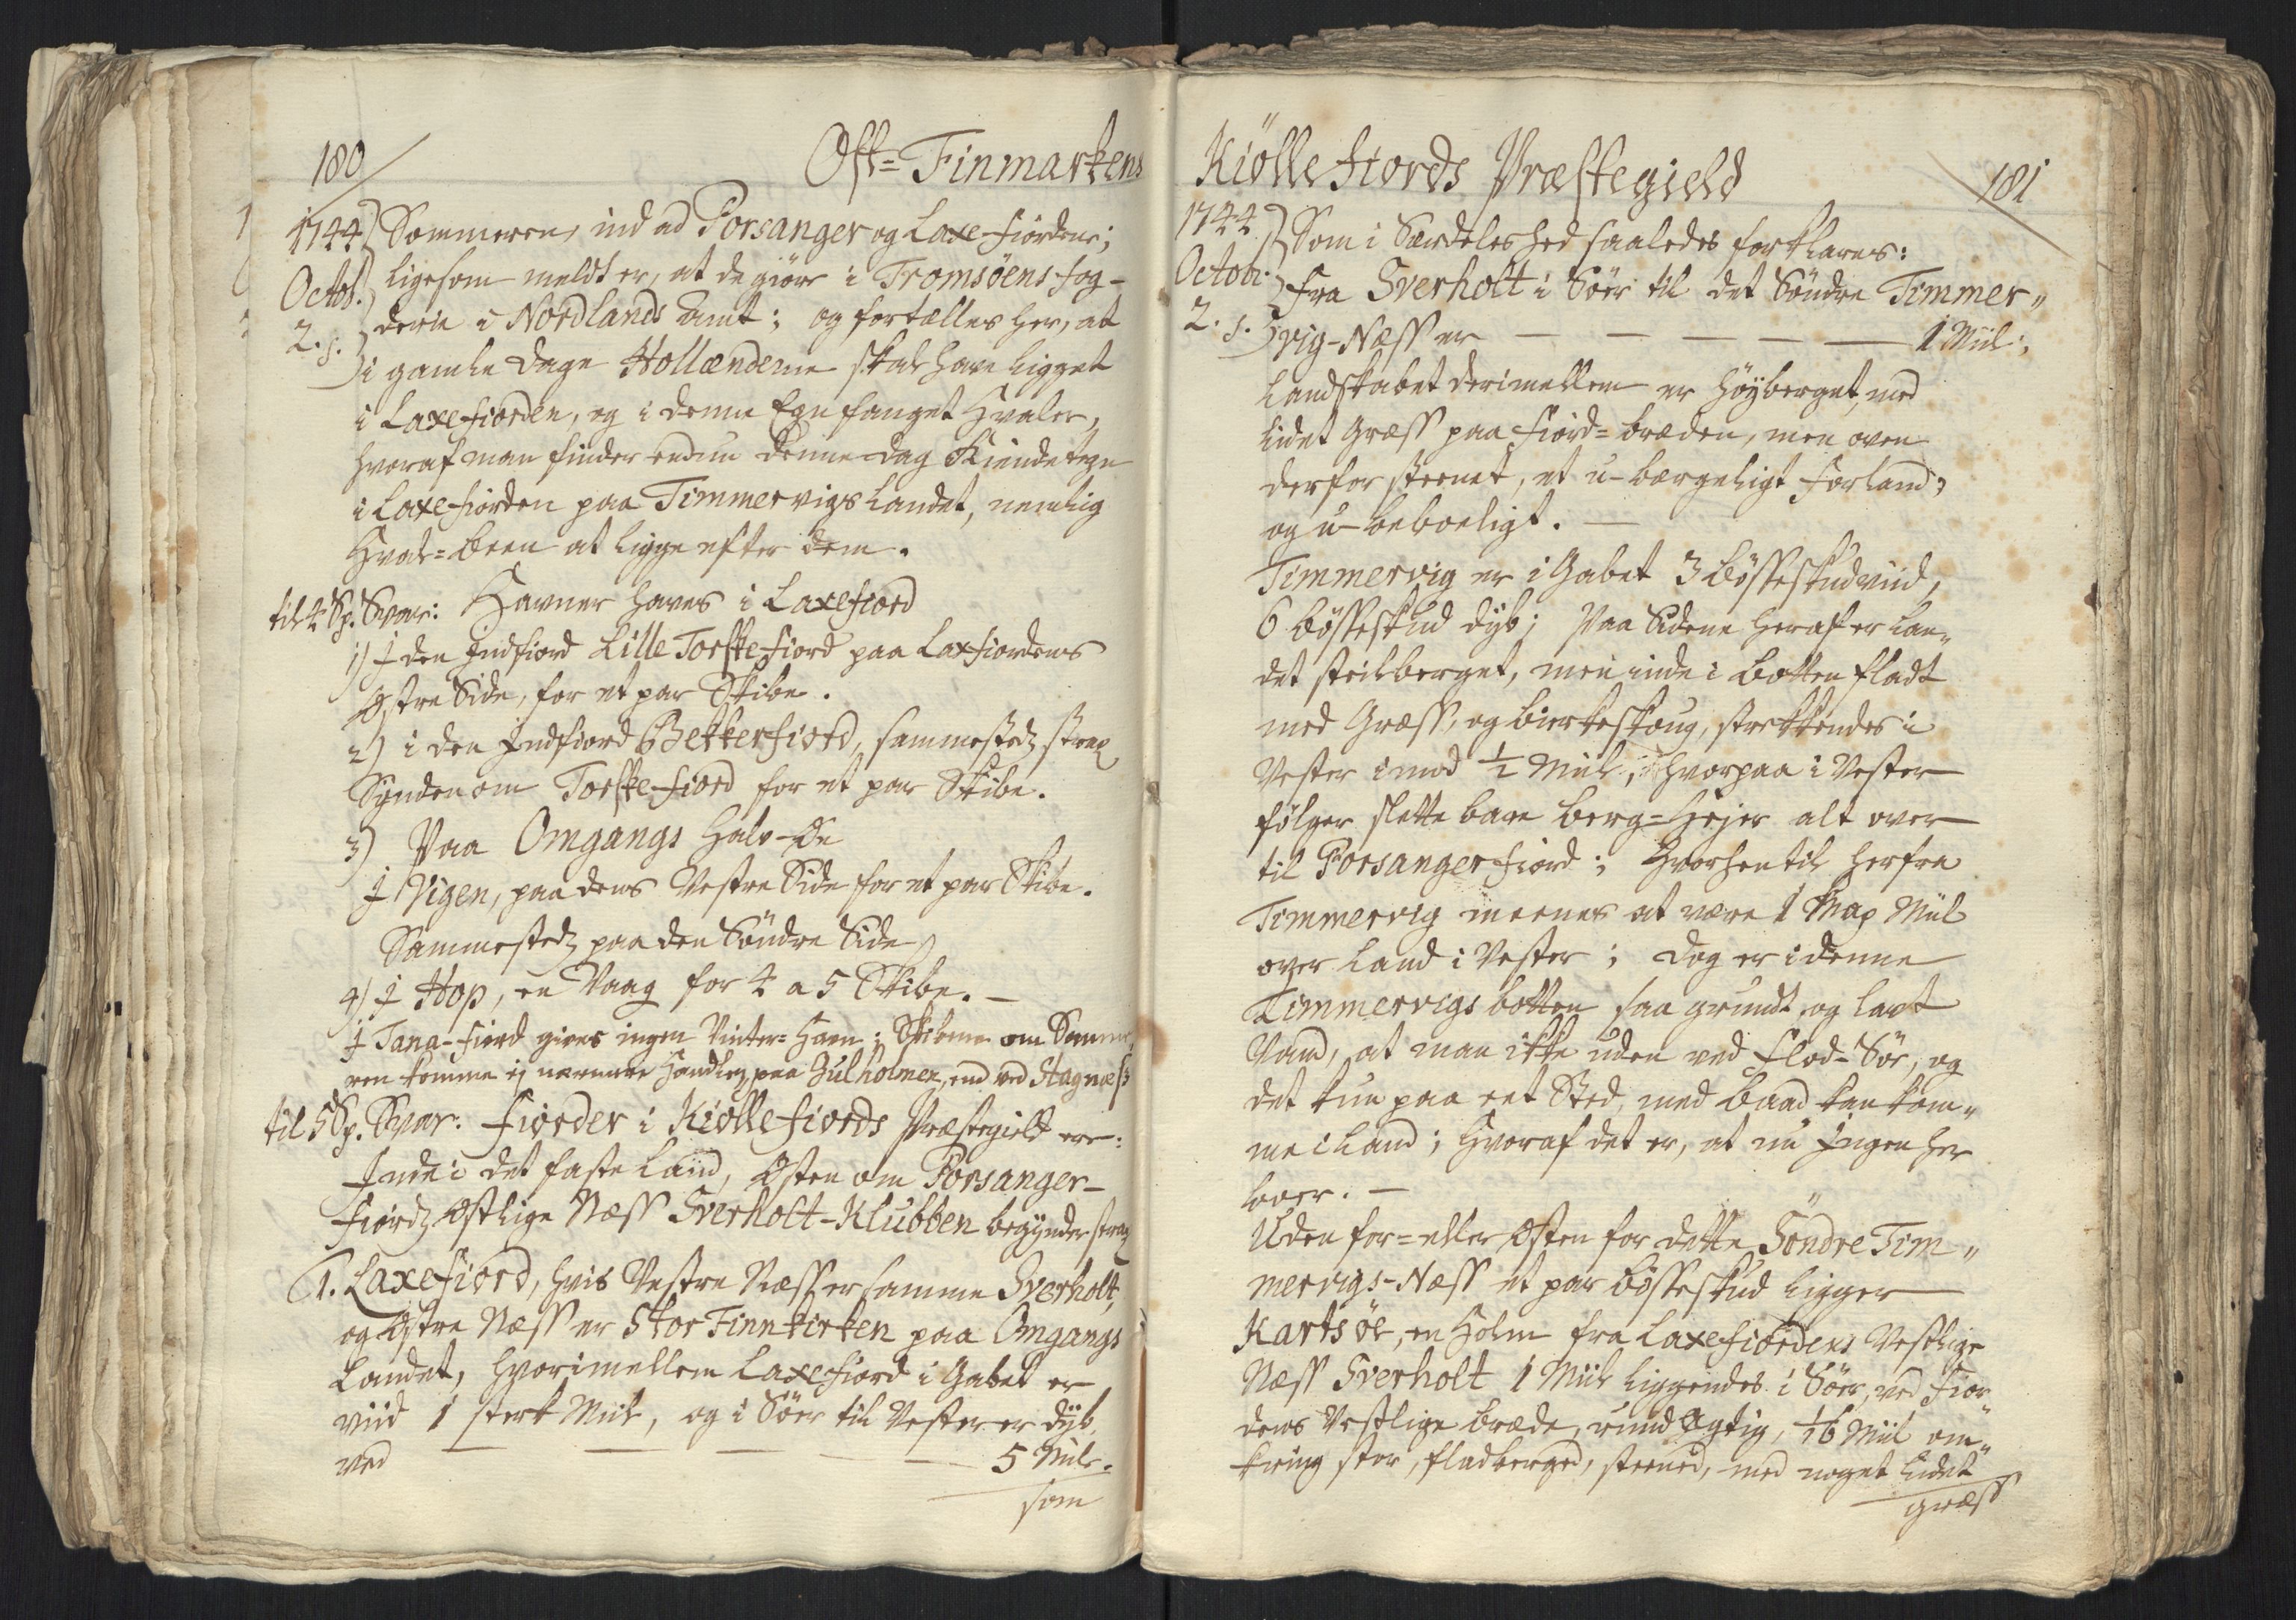 180
Ost=Finmarkens
1744
Octob.
2. s.
Sommeren, ind ad Porsanger og Laxe-fiordene;
ligesom meldt er, at de giöre i Tromsöens fog-
derie i Nordlands Amt; og fortælles her, at
i gamle dage Hollænderne skal have ligget
i Laxefiorden, og i denne Egn fanget Hvaler,
hvoraf man finder endnu denne dag Kiendetegn
i Laxefiorden paa Timmervigs Landet, nemlig
Hval=been at ligge efter dem.
til 4 Sp. Svar: Havner haves i Laxefiord
1) I den Indfiord Lille Torskefiord paa Laxfiordens
Østre Side, for et par Skibe.
2) i den Indfiord Bekkerfiord, sammestedz strax
Synden om Torskefiord for et par Skibe.
3) Paa Omgangs Halv-Øe
I Vigen, paa dens Vestre Side for et par Skibe.
Sammestedz paa den Söndre Side
4) I Hop, en Vaag for 4 a 5 Skibe. —
I Tana-fiord gives ingen Vinter=Havn; Skibene om Somme
ren komme ej nærmere Handlen paa Gulholmen, end ved Stagnæss
til 5 Sp. Svar: Fiorder i Kiöllefiords Præstegield ere:
Inde i det faste Land, Østen om Porsanger-
fiordz Østlige Næss Sverholt-Klubben begynder strax
1. Laxefiord, hvis Vestre Næss er samme Sverholt,
og Østre Næss er Stor Finnkirken paa Omgangs
Landet, hvorimellem Laxefiord i Gabet er
viid 1 sterk Miil, og i Söer til Vester er dyb
ved — — — — — 5 Miile.
som
Kiöllefiords Præstegield
181
1744
Octobr.
2. s.
Som i Særdeleshed saaledes forklares:
Fra Sverholt i Söer til det Söndre Timmer„
vig-Næss er — — — — — 1 Miil;
Landskabet derimellem er höyberget, med
lidet Græss paa fiord=bredden, men oven
derfor steenet, et u-bærgeligt Forland,
og u-beboeligt. —
Timmervig er i Gabet 3 Bösseskud viid,
6 Bösseskud dyb; Paa Sidene heraf er Lan„
det steilberget, men inde i botten fladt
med Græss, og birkeskoug, strekkendes i
Vester imod ½ Miil; hvorpaa i Vester
fölger slette bare Berg=Hejer alt over
til Porsangerfiord; Hvorhen til herfra
Timmervig meenes at være 1 Knap Miil
over Land i Vester; dog er i denne
Timmervigs botten saa grundt og lavt
Vand, at man ikke uden ved flod-Söe, og
det kun paa eet Sted, med Baad kan kom„
me i Land; Hvoraf det er, at nu Ingen her
boer. —
Uden for=eller Østen for dette Söndre Tim„
mervigs-Næss et par bösseskud ligger
Kartsöe, en Holm fra Laxefiordens Vestlige
Næss Sverholt 1 Miil liggendes i Söer, ved Fior„
dens Vestlige bredde, rund Agtig, 1/16 Miil om„
kring stor, fladberged, steened, med noget lidet
græss